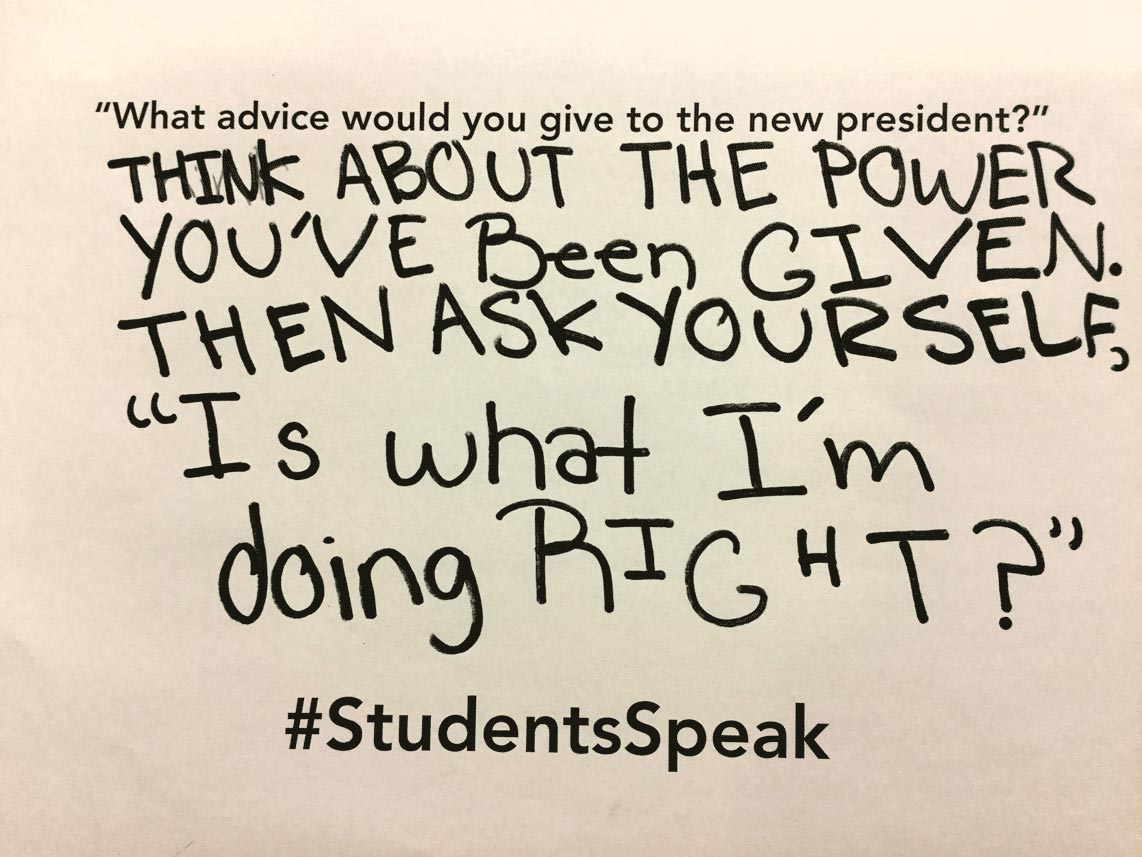 “What advice would you give to the new president?”
THINK ABOUT THE POWER
YOU'VE Been GIVEN.
THEN ASK YOURSELF,
“Is what I'm
doing RIGHT?”
#StudentsSpeak